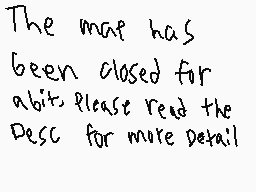 The mae has
been closed for
abit, Please read the
Desc for more Detail